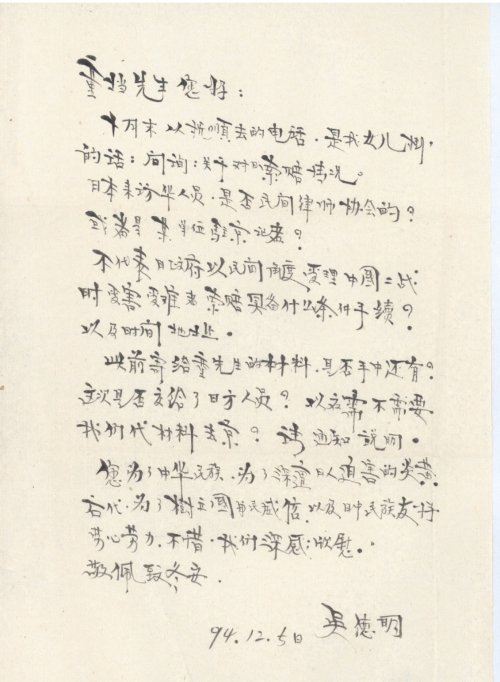 童增先生您好：
十月末以抚顺去的电话，是我女儿
的话：问询：关于对日索赔情况。
日本来访华人员，是否民间律师协会的？
或者是某单位驻京记者？
不代表日政府以民间角度受理中国二战
时受害受难者索赔具备什么条件手续？
以及时间地址。
以前寄给童先生的材料，是否手中还有？
这次是否交给了日方人员？以后需不需要
我们代材料去京？请通知说明。
您为了中华民族，为了深谊日人迫害的炎黄
后代，为了树立国中民威信，以及日中民族友好
劳心劳力，不惜，我们深感欣慰。
敬佩致冬安。
吴德明
94.12.5日